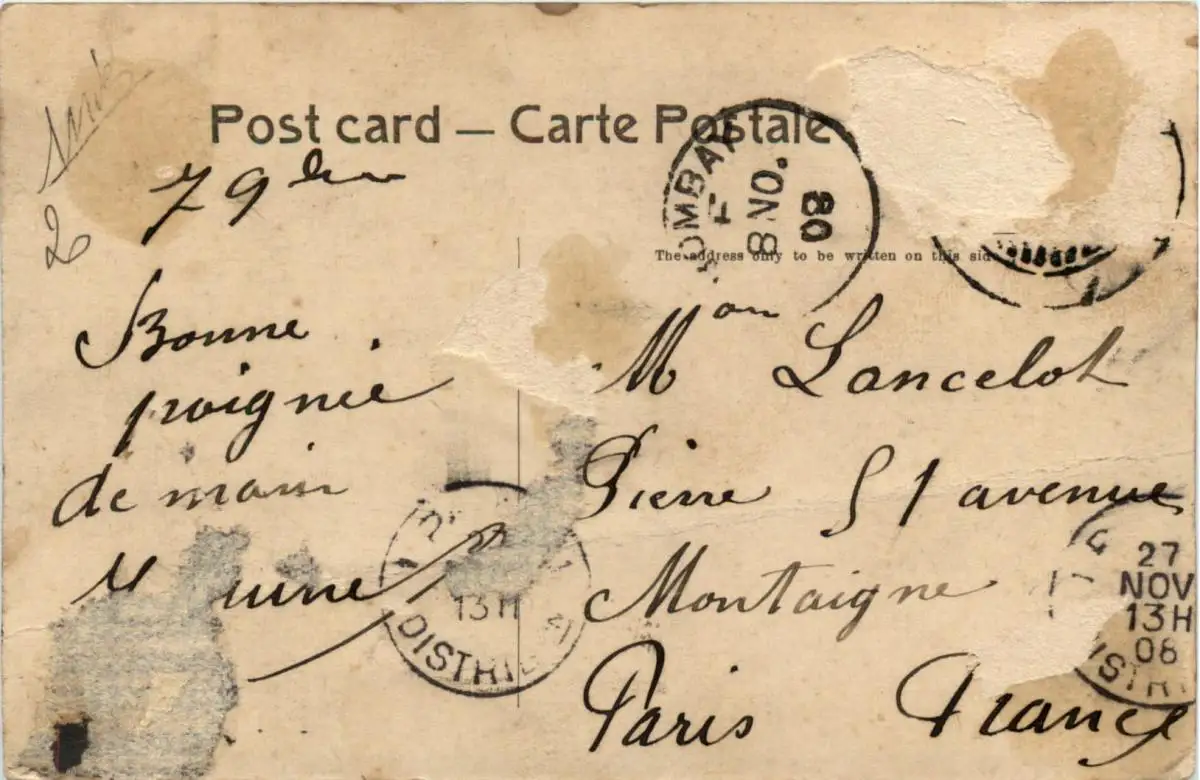 Post card — Carte Postale
79ème
2
BOMBAY
8 NO.
08
The address only to be written on this sid
Bonne
poignée
de main
Mon Lancelot
Pierre 51 avenue
Montaigne
Paris France
13H
DISTRIB
27
NOV
13H
08
DISTRI